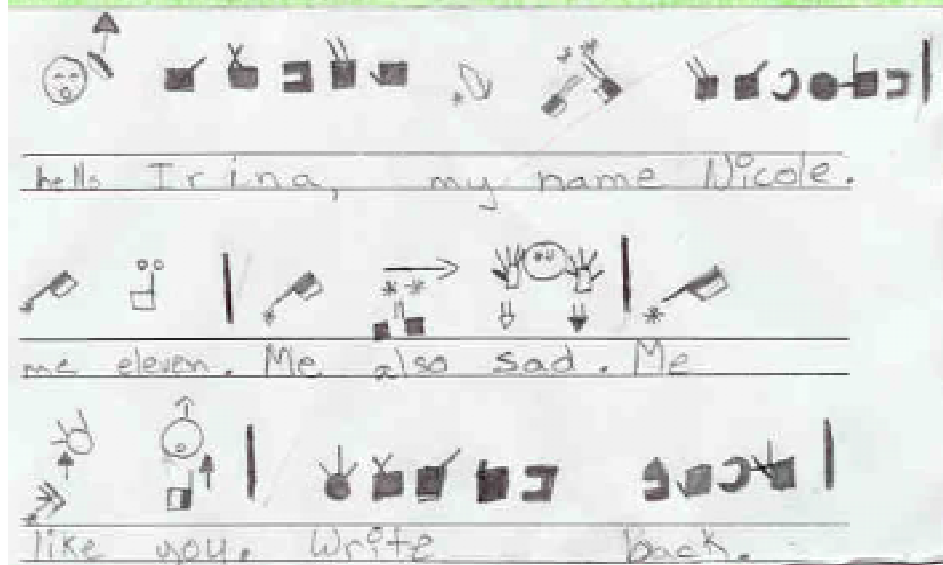 hello Irina, my name Nicole.
me eleven. Me also sad. Me
like you. Write back.